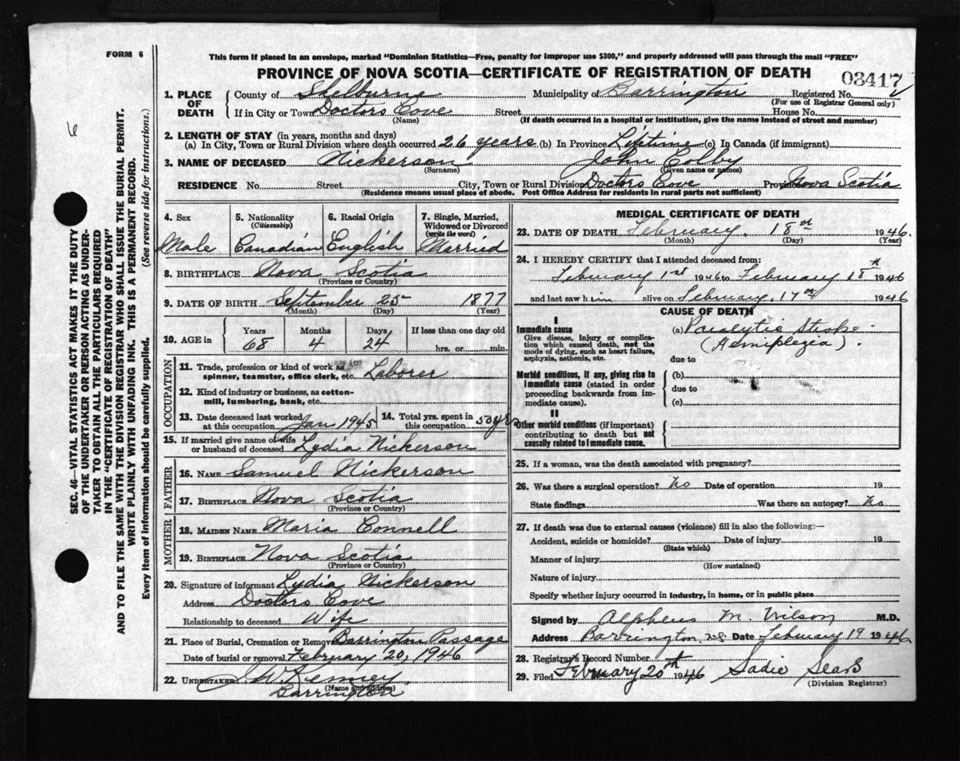 FORM 6
This form if placed in an envelope, marked "Dominion Statistics—Free, penalty for improper use $300," and properly addressed will pass through the mail "FREE"
PROVINCE OF NOVA SCOTIA—CERTIFICATE OF REGISTRATION OF DEATH
03417
SEC. 46—VITAL STATISTICS ACT MAKES IT THE DUTY
OF THE UNDERTAKER OR PERSON ACTING AS UNDER-
TAKER TO OBTAIN ALL THE PARTICULARS REQUIRED
IN THE "CERTIFICATE OF REGISTRATION OF DEATH"
AND TO FILE THE SAME WITH THE DIVISION REGISTRAR WHO SHALL ISSUE THE BURIAL PERMIT.
WRITE PLAINLY WITH UNFADING INK. THIS IS A PERMANENT RECORD.
Every item of information should be carefully supplied. (See reverse side for instructions.)
6
1. PLACE OF DEATH
County of Shelburne Municipality of Barrington Registered No.
(For use of Registrar General only)
If in City or Town Doctors Cove Street House No.
(Name) (If death occurred in a hospital or institution, give the name instead of street and number)
2. LENGTH OF STAY (in years, months and days)
(a) In City, Town or Rural Division where death occurred 26 years (b) In Province Lifetime (c) In Canada (if immigrant)
3. NAME OF DECEASED Nickerson John Colby
(Surname) (Given name or names)
RESIDENCE No. Street City, Town or Rural Division Doctors Cove Province Nova Scotia
(Residence means usual place of abode. Post Office Address for residents in rural parts not sufficient)
4. Sex 5. Nationality (Citizenship) 6. Racial Origin 7. Single, Married, Widowed or Divorced (write the word)
Male Canadian English Married
8. BIRTHPLACE Nova Scotia
(Province or Country)
9. DATE OF BIRTH September 25 1877
(Month) (Day) (Year)
10. AGE in Years Months Days If less than one day old
68 4 24 hrs. or min.
OCCUPATION
11. Trade, profession or kind of work as
spinner, teamster, office clerk, etc. Laborer
12. Kind of industry or business, as cotton-
mill, lumbering, bank, etc.
13. Date deceased last worked at this occupation Jan 1945 14. Total yrs. spent in this occupation 50 yrs
15. If married give name of wife
or husband of deceased Lydia Nickerson
FATHER
16. NAME Samuel Nickerson
17. BIRTHPLACE Nova Scotia
(Province or Country)
MOTHER
18. MAIDEN NAME Maria Connell
19. BIRTHPLACE Nova Scotia
(Province or Country)
20. Signature of informant Lydia Nickerson
Address Doctors Cove
Relationship to deceased Wife
21. Place of Burial, Cremation or Removal Barrington Passage
Date of burial or removal February 20, 1946
22. UNDERTAKER J. W. Kenney
(Name and address)
Barrington
MEDICAL CERTIFICATE OF DEATH
23. DATE OF DEATH February, 18th 1946.
(Month) (Day) (Year)
24. I HEREBY CERTIFY that I attended deceased from:
February 1st 1946 to February 18th 1946
and last saw him alive on February 17th 1946
CAUSE OF DEATH
I
Immediate cause
Give disease, injury or complica-
tion which caused death, not the
mode of dying, such as heart failure,
asphyxia, asthenia, etc.
(a) Paralytic Stroke
(Hemiplegia).
due to
Morbid conditions, if any, giving rise to
immediate cause (stated in order
proceeding backwards from
immediate cause).
(b)
due to
(c)
II
Other morbid conditions (if important)
contributing to death but not
causally related to immediate cause.
25. If a woman, was the death associated with pregnancy?
26. Was there a surgical operation? No Date of operation 19
State findings Was there an autopsy? No
27. If death was due to external causes (violence) fill in also the following:—
Accident, suicide or homicide? Date of injury 19
(State which)
Manner of injury
(How sustained)
Nature of injury
Specify whether injury occurred in industry, in home, or in public place
Signed by Alpheus M. Wilson M.D.
Address Barrington, N.S. Date February 19 1946
28. Registrar's Record Number
29. Filed February 20th 1946 Sadie Sears
(Division Registrar)